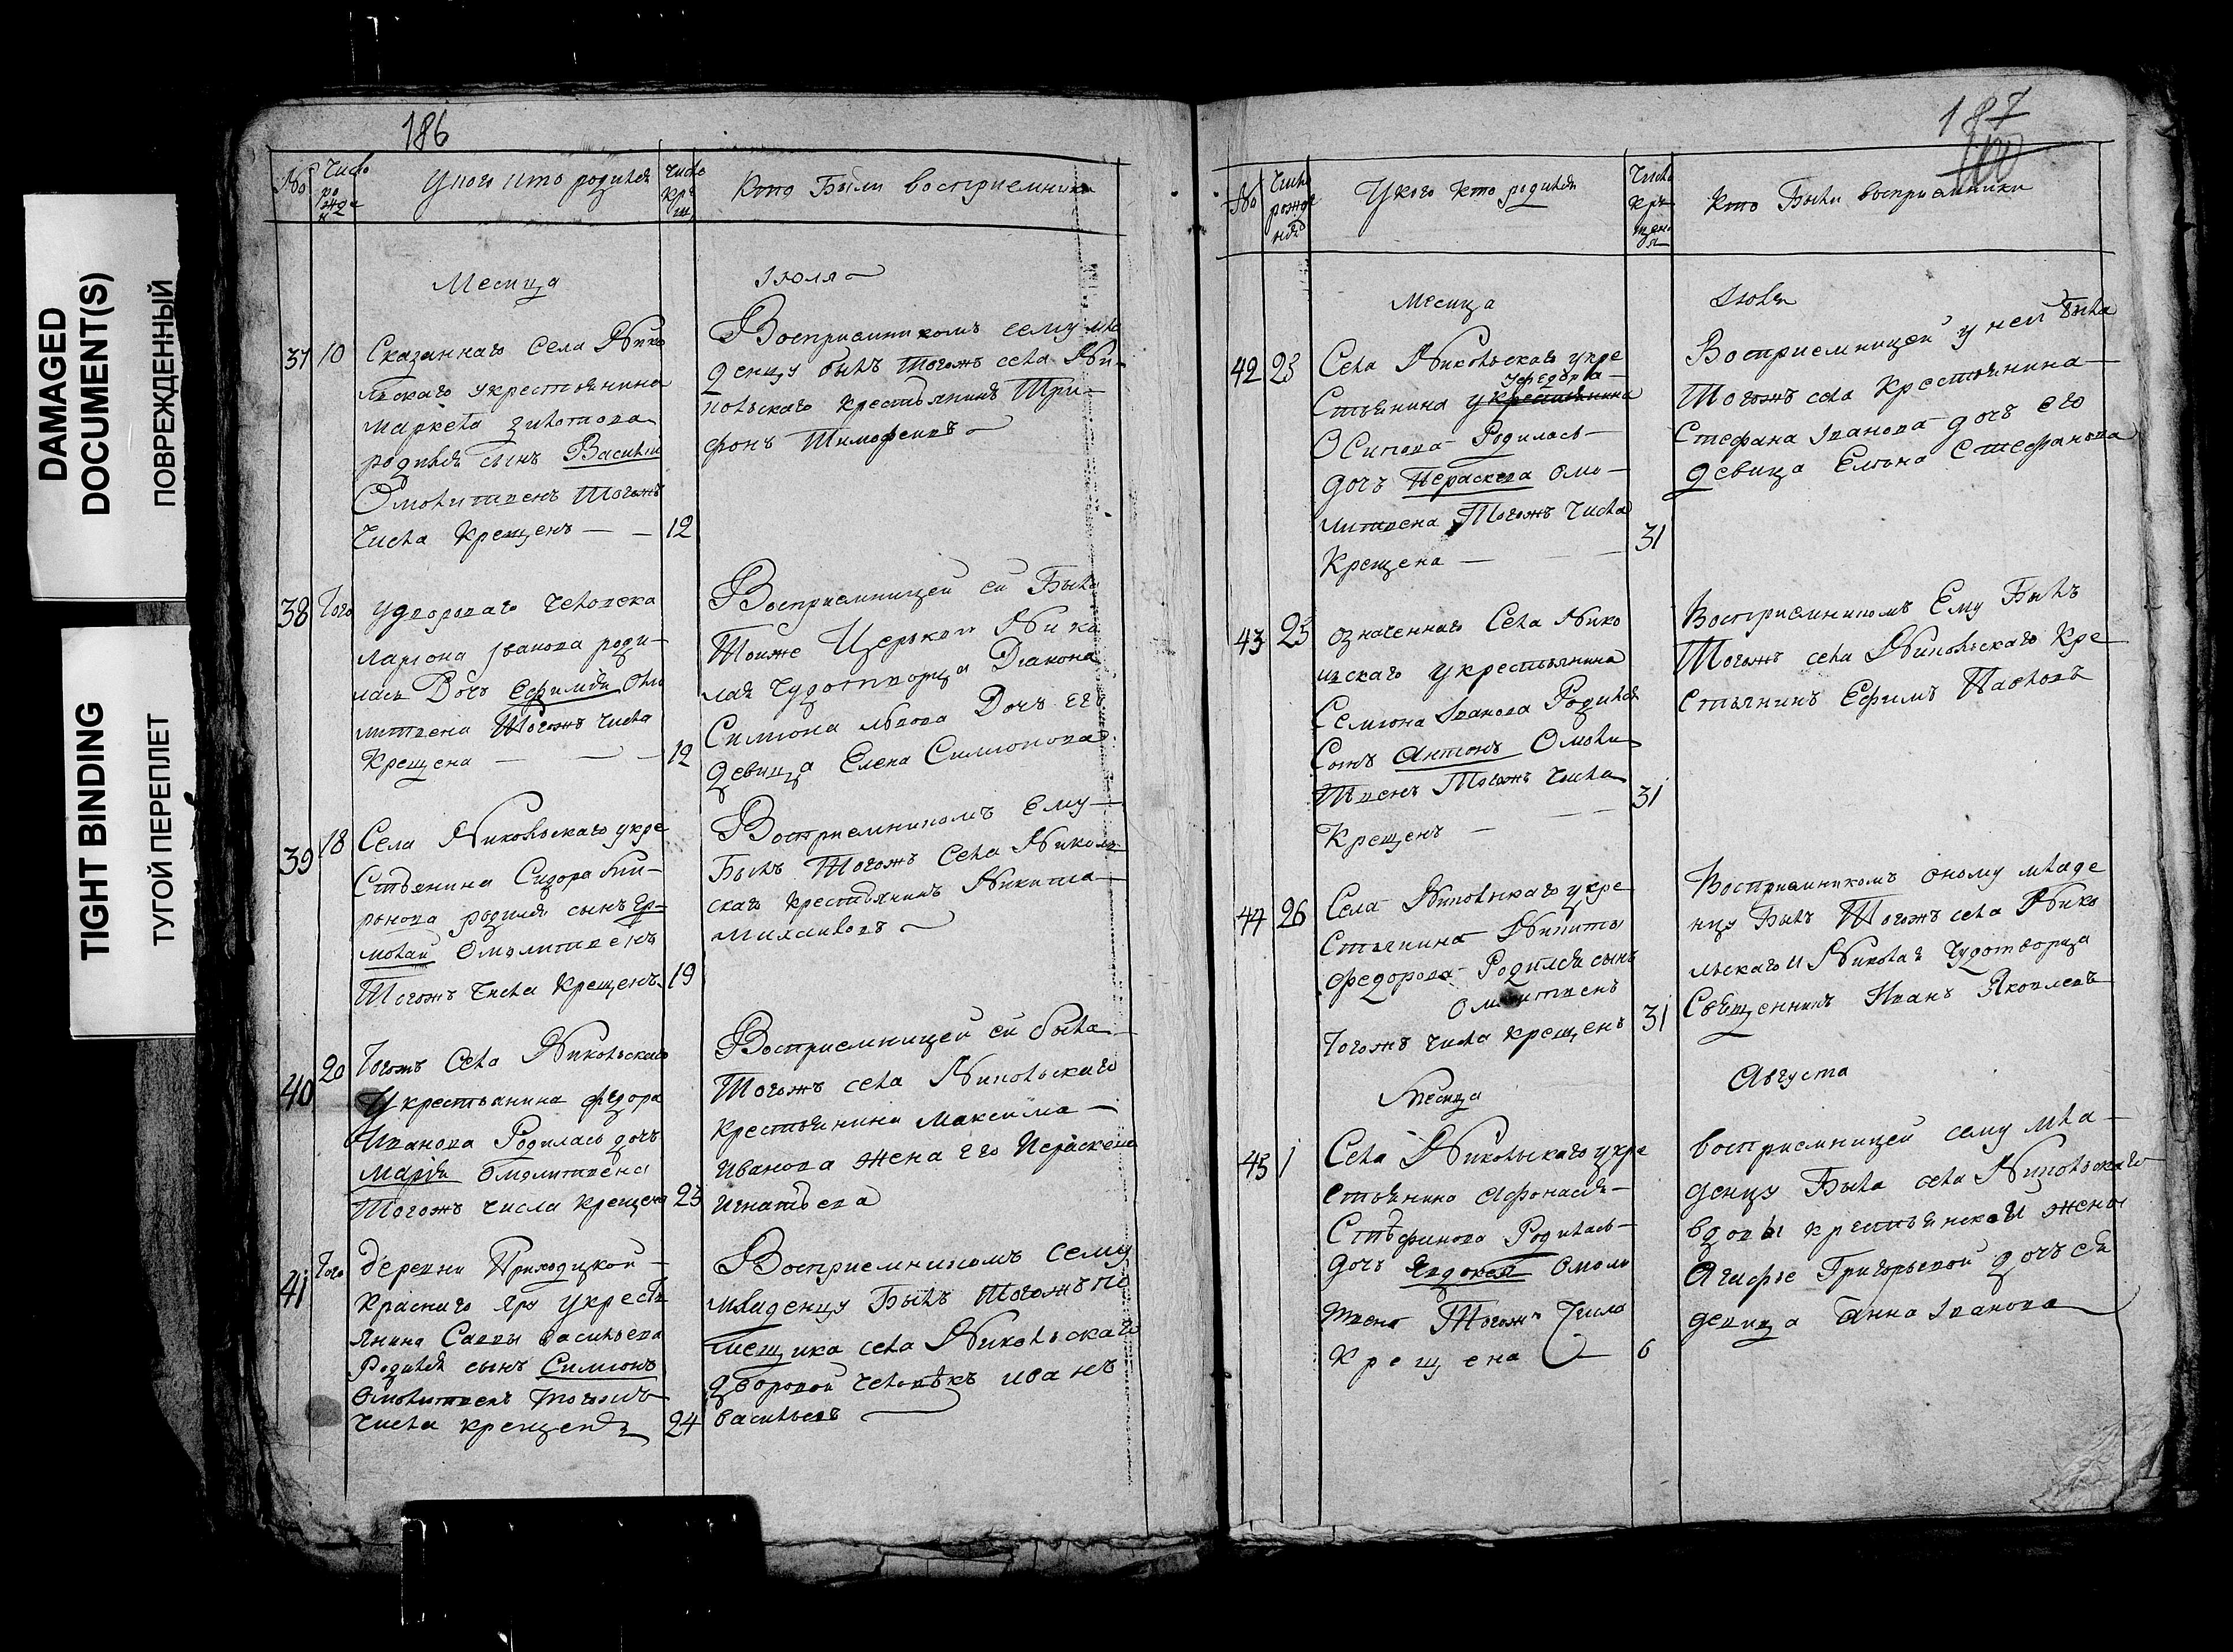 DAMAGED
DOCUMENT(S)
ПОВРЕЖДЕННЫЙ
TIGHT BINDING
ТУГОЙ ПЕРЕПЛЕТ
186
No
Число
рожде
У кого кто родился
Число
кре
щ
Кто Были восприемники
Месица
Іюля
37 10 Сказаннаго Села Нико
льскаго укрестьянина
родился сынъ Василій
Омолитвенъ Тогожъ
Числа Крещенъ 12
Восприемникомъ сему мла
денцу былъ Тогожъ села Ни-
кольскаго крестьянинъ Три-
фонъ Тимофеевъ
38 Того удвороваго человека
Лариона Іванова роди-
лась Дочь Ефимия Омо
литвена Тогожъ числа
Крещена 12
Восприемницей ей Была
Тоиже Церькви Нико
лая Чудотворца Диакона
Симиона Львова Дочь его
девица Елена Симионова
39 18 Села Никольскаго укре
Стьянина Сидора Ми-
ронова родился сынъ Ер-
молай Омолитвенъ
Тогожъ Числа Крещенъ 19
Восприемникомъ Ему
Былъ Тогожъ Села Николь
скаго крестьянинъ Никита
Михаиловъ
40 20 Тогожъ Села Никольскаго
Укрестьянина федора
Иванова Родилась дочь
Марія Омолитвена
Тогожъ Числа крещена 23
Восприемницей ей была
Тогожъ села Никольскаго
крестьянина Максима
Иванова жена его Пераскева
Игнатьева
41 Того деревни Приходцкой
Краснаго Яру укресть
янина Саввы Васильева
Родился сынъ Симионъ
Омолитвенъ Тогожъ
Числа крещенъ 24
Восприемникомъ сему
младенцу Былъ Тогожъ по
мещика села Никольскаго
дворовой человекъ Иванъ
Васильевъ
187
100
No
Число
рожде
нія
У кого кто родился
Число
кре
щен
Кто Были восприемники
Месица
Іюля
42 23 Села Никольскаго укре
Стьянина укрестьянина
уфедора
Осипова Родилась
дочь Пераскева Омо
литвена Тогожъ Числа
Крещена 31
Восприемницей у ней была
Тогожъ села Крестьянина
Стефана Іванова дочь его
девица Елена Стефанова
43 25 означеннаго Села Нико
льскаго укрестьянина
Семиона Іванова Родился
Сынъ Антонъ Омоли
Твенъ Тогожъ Числа
Крещенъ 31
Восприемникомъ Ему Былъ
Тогожъ села Никольскаго Кре
стьянинъ Ефимъ Павловъ
44 26 Села Никольскаго укре
Стьянина Никиты
федорова Родился сынъ
Омолитвенъ
Тогожъ числа крещенъ 31
Восприемникомъ оному младе
нцу Былъ Тогожъ села Нико
льскаго Николая Чудотворца
Священникъ Иванъ Яковлевъ
Месица
Августа
45 1 Села Никольскаго укре
стьянина Афонасия
Стефанова Родилась
дочь Евдокея Омоли
твена Тогожъ Числа
Крещена 6
Восприемницей сему мла-
денцу Была села Никольскаго
вдовы крестьянской жены
Агафье Григорьевой дочь ея
девица Анна Іванова